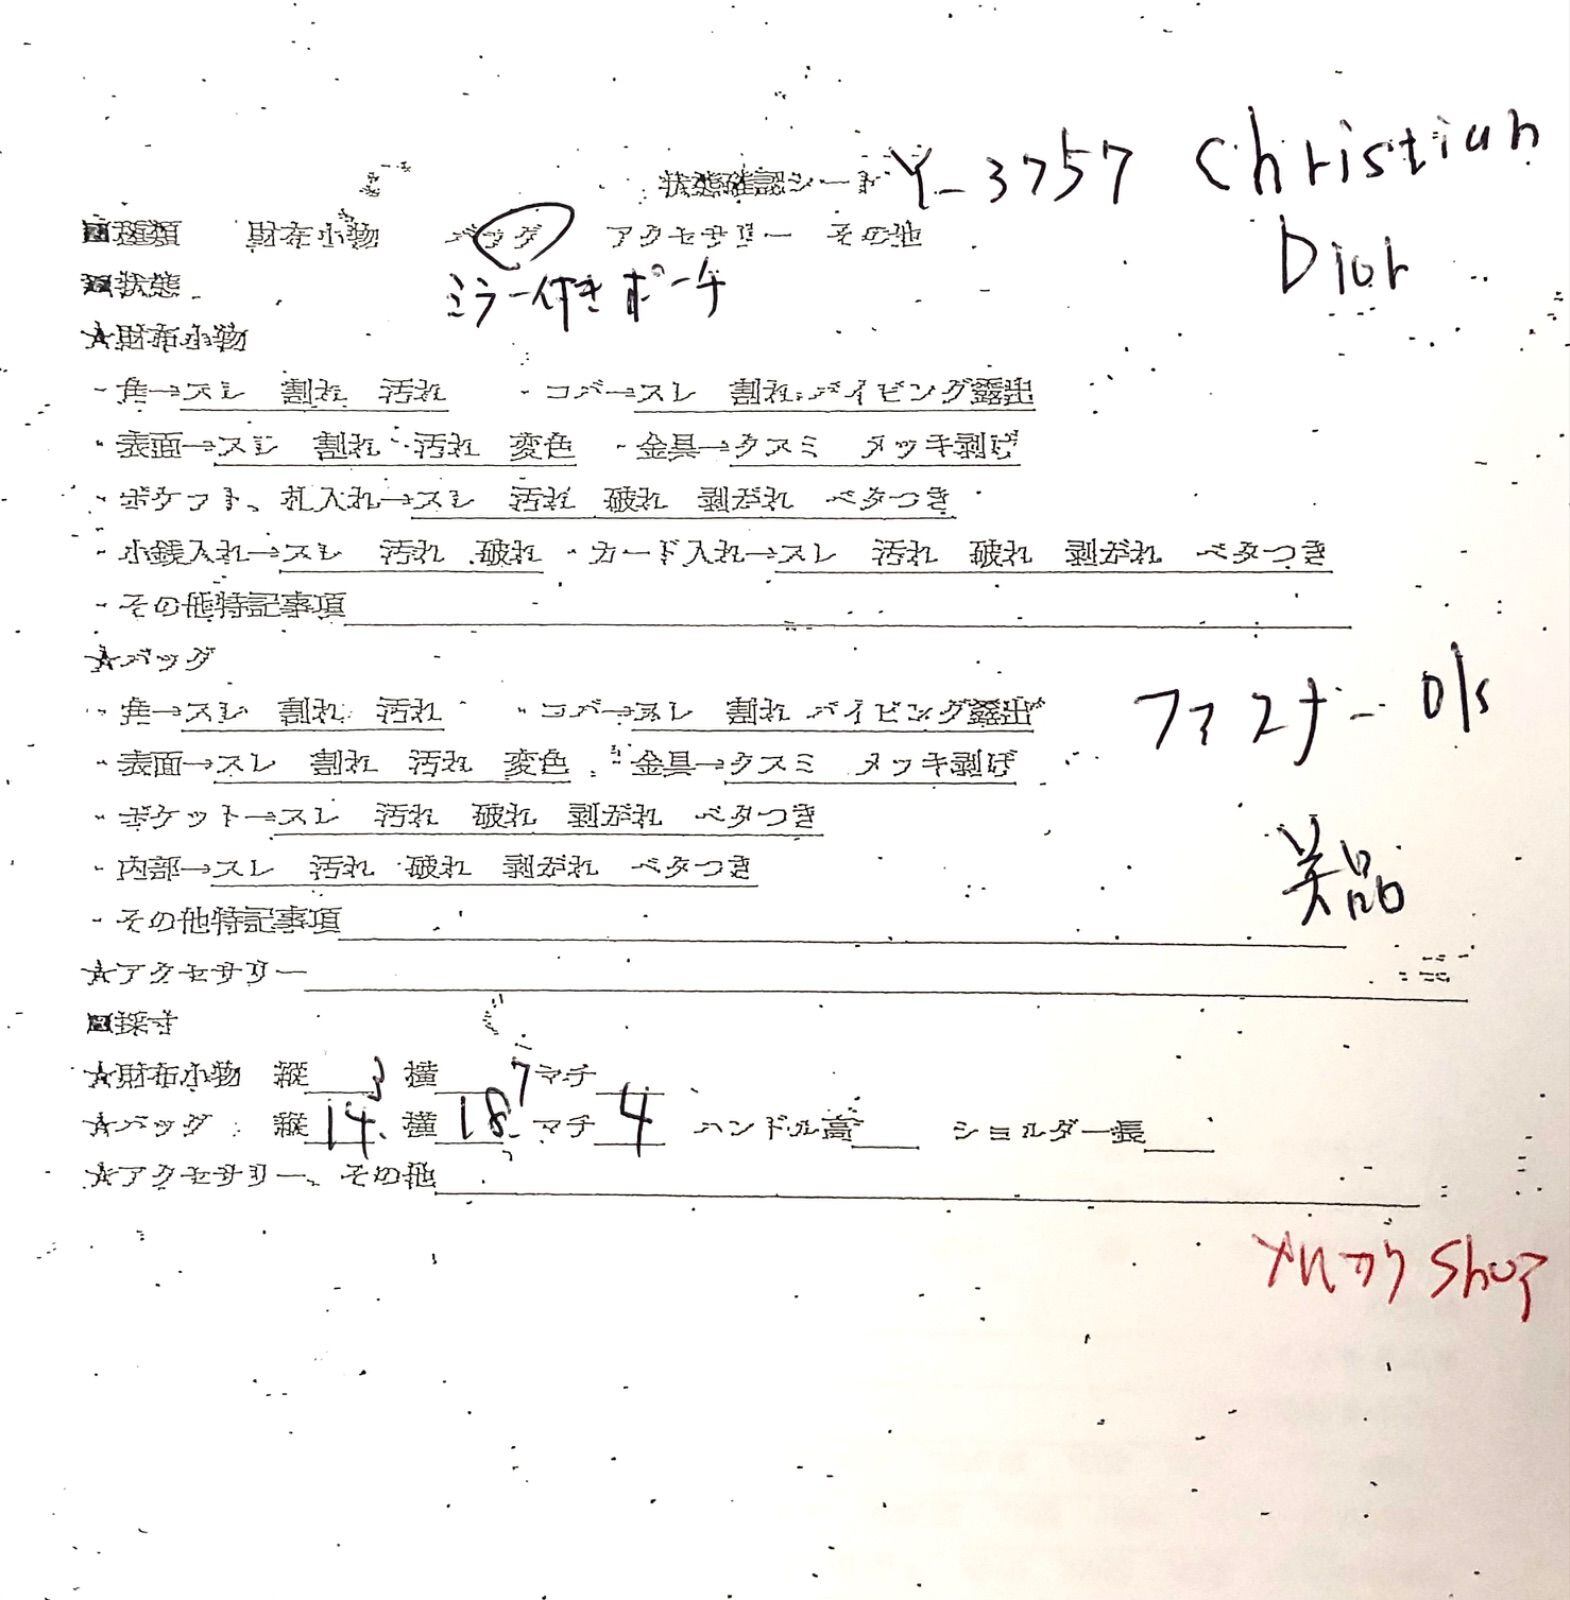 状態確認シート Y-3757 Christian
Dior
■種類 財布小物 バッグ アクセサリー その他
■状態 ミラー付きポーチ
★財布小物
・角→スレ 割れ 汚れ ・コバ→スレ 割れ パイピング露出
・表面→スレ 割れ 汚れ 変色 ・金具→クスミ メッキ剥げ
・ポケット、札入れ→スレ 汚れ 破れ 剥がれ ベタつき
・小銭入れ→スレ 汚れ 破れ ・カード入れ→スレ 汚れ 破れ 剥がれ ベタつき
・その他特記事項
★バッグ
・角→スレ 割れ 汚れ ・コバ→スレ 割れ パイピング露出 ファスナー O/s
・表面→スレ 割れ 汚れ 変色 ・金具→クスミ メッキ剥げ
・ポケット→スレ 汚れ 破れ 剥がれ ベタつき
・内部→スレ 汚れ 破れ 剥がれ ベタつき 美品
・その他特記事項
★アクセサリー
■採寸
★財布小物 縦 3 横 7 マチ
★バッグ 縦 14. 横 18. マチ 4 ハンドル高 ショルダー長
★アクセサリー、その他
メルカリ Shop